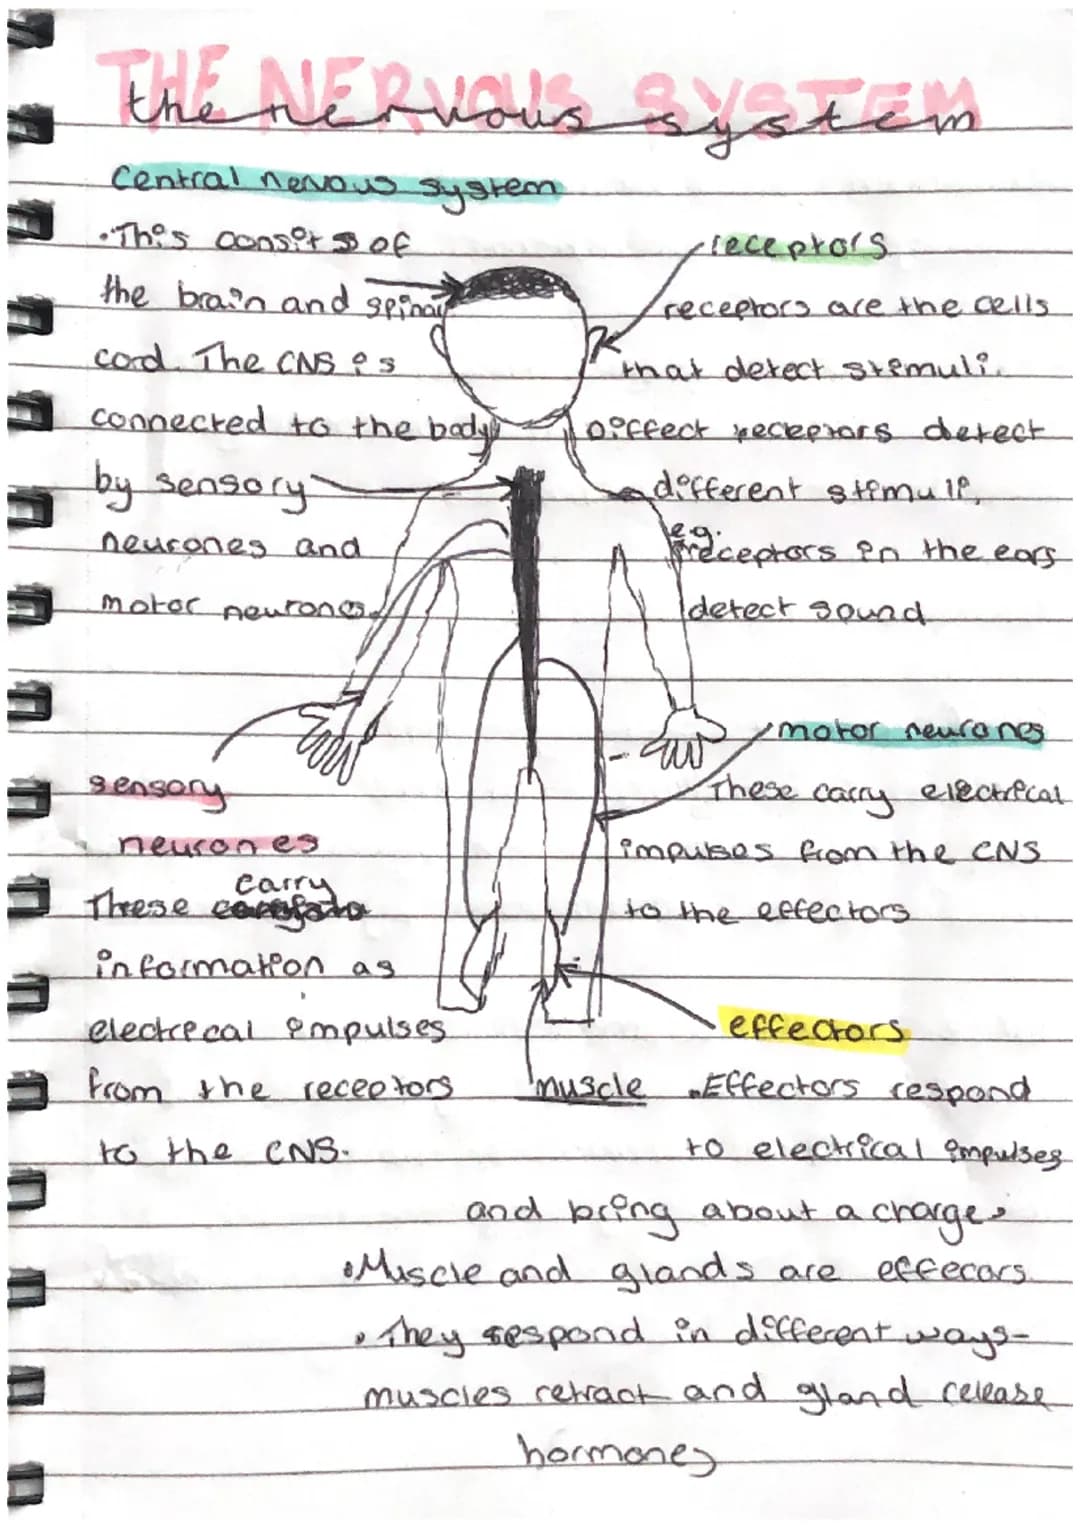 THE NERVOUS SYSTEM
the nervous system
Central nervous system
·This consits of
the brain and spinal
cord. The CNS is
connected to the body
by sensory
neurones and
motor neurones.
receptors
receptors are the cells
that detect stimuli.
Diffect receptors detect
different stimuli,
e.g.
receptors in the ears
detect sound
motor neurones
These carry electrical
impulses from the CNS
to the effectors
sensory
neurones
carry
These
information as
electrical impulses
from the receptors
to the CNS.
muscle
effectors
•Effectors respond
to electrical impulses
and bring about a charge.
•Muscle and glands are effecors
• They respond in different ways-
muscles retract and gland release
hormones